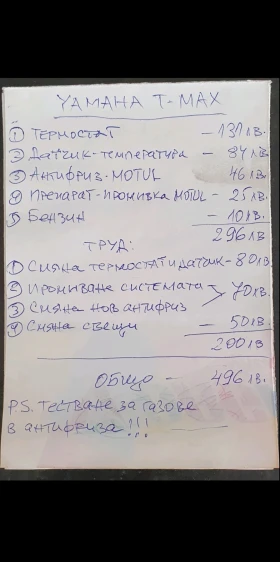 YAMAHA T-MAX
① ТЕРМОСТАТ - 131 ЛВ.
② ДАТЧИК-ТЕМПЕРАТУРА - 84 ЛВ.
③ АНТИФРИЗ-MOTUL 46 ЛВ.
④ ПРЕПАРАТ-ПРОМИВКА MOTUL - 25 ЛВ.
⑤ БЕНЗИН - 10 ЛВ.
296 ЛВ.
ТРУД:
① СМЯНА ТЕРМОСТАТ И ДАТЧИК - 80 ЛВ.
② ПРОМИВАНЕ СИСТЕМАТА > 70 ЛВ.
③ СМЯНА НОВ АНТИФРИЗ
④ СМЯНА СВЕЩИ - 50 ЛВ.
200 ЛВ
ОБЩО - 496 ЛВ.
P.S. ТЕСТВАНЕ ЗА ГАЗОВЕ
В АНТИФРИЗА !!!